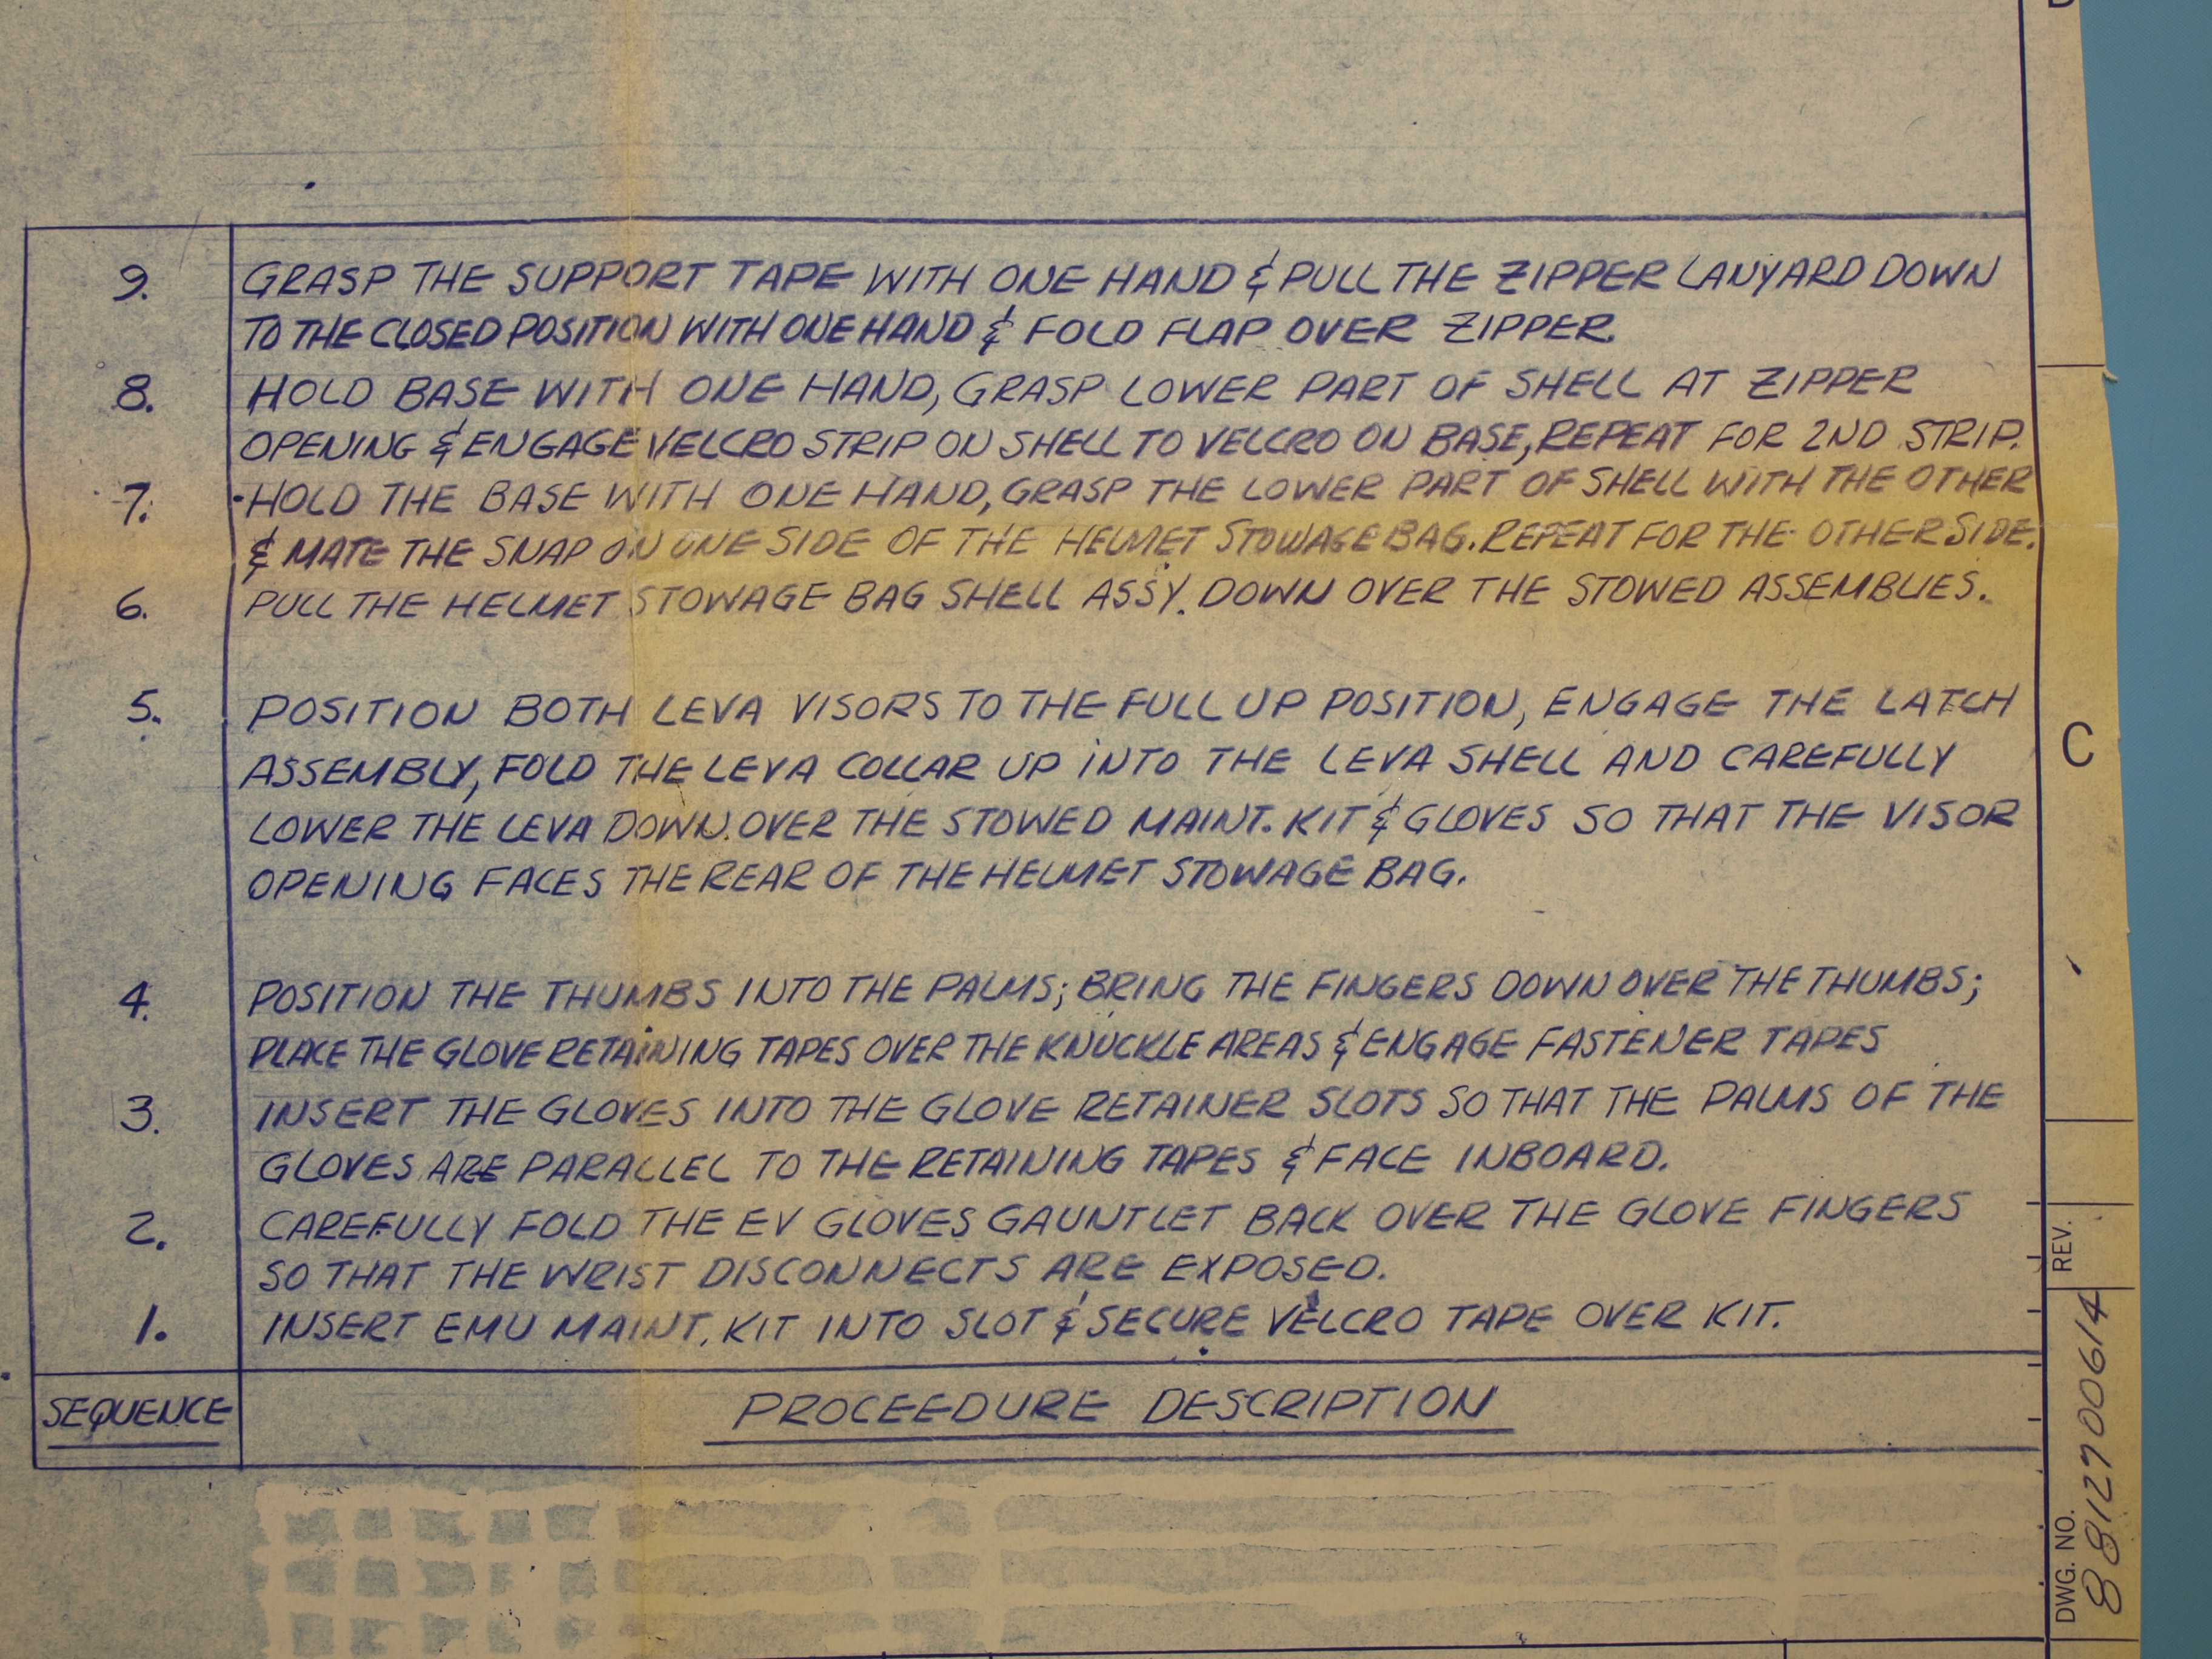 9. GRASP THE SUPPORT TAPE WITH ONE HAND & PULL THE ZIPPER LANYARD DOWN
TO THE CLOSED POSITION WITH ONE HAND & FOLD FLAP OVER ZIPPER.
8. HOLD BASE WITH ONE HAND, GRASP LOWER PART OF SHELL AT ZIPPER
OPENING & ENGAGE VELCRO STRIP ON SHELL TO VELCRO ON BASE, REPEAT FOR 2ND STRIP.
7. HOLD THE BASE WITH ONE HAND, GRASP THE LOWER PART OF SHELL WITH THE OTHER
& MATE THE SNAP ON ONE SIDE OF THE HELMET STOWAGE BAG. REPEAT FOR THE OTHER SIDE.
6. PULL THE HELMET STOWAGE BAG SHELL ASSY. DOWN OVER THE STOWED ASSEMBLIES.
5. POSITION BOTH LEVA VISORS TO THE FULL UP POSITION, ENGAGE THE LATCH
ASSEMBLY, FOLD THE LEVA COLLAR UP INTO THE LEVA SHELL AND CAREFULLY
LOWER THE LEVA DOWN OVER THE STOWED MAINT. KIT & GLOVES SO THAT THE VISOR
OPENING FACES THE REAR OF THE HELMET STOWAGE BAG.
4. POSITION THE THUMBS INTO THE PALMS; BRING THE FINGERS DOWN OVER THE THUMBS;
PLACE THE GLOVE RETAINING TAPES OVER THE KNUCKLE AREAS & ENGAGE FASTENER TAPES
3. INSERT THE GLOVES INTO THE GLOVE RETAINER SLOTS SO THAT THE PALMS OF THE
GLOVES ARE PARALLEL TO THE RETAINING TAPES & FACE INBOARD.
2. CAREFULLY FOLD THE EV GLOVES GAUNTLET BACK OVER THE GLOVE FINGERS
SO THAT THE WRIST DISCONNECTS ARE EXPOSED.
1. INSERT EMU MAINT. KIT INTO SLOT & SECURE VELCRO TAPE OVER KIT.
SEQUENCE PROCEEDURE DESCRIPTION
C
REV.
DWG. NO.
8812700614